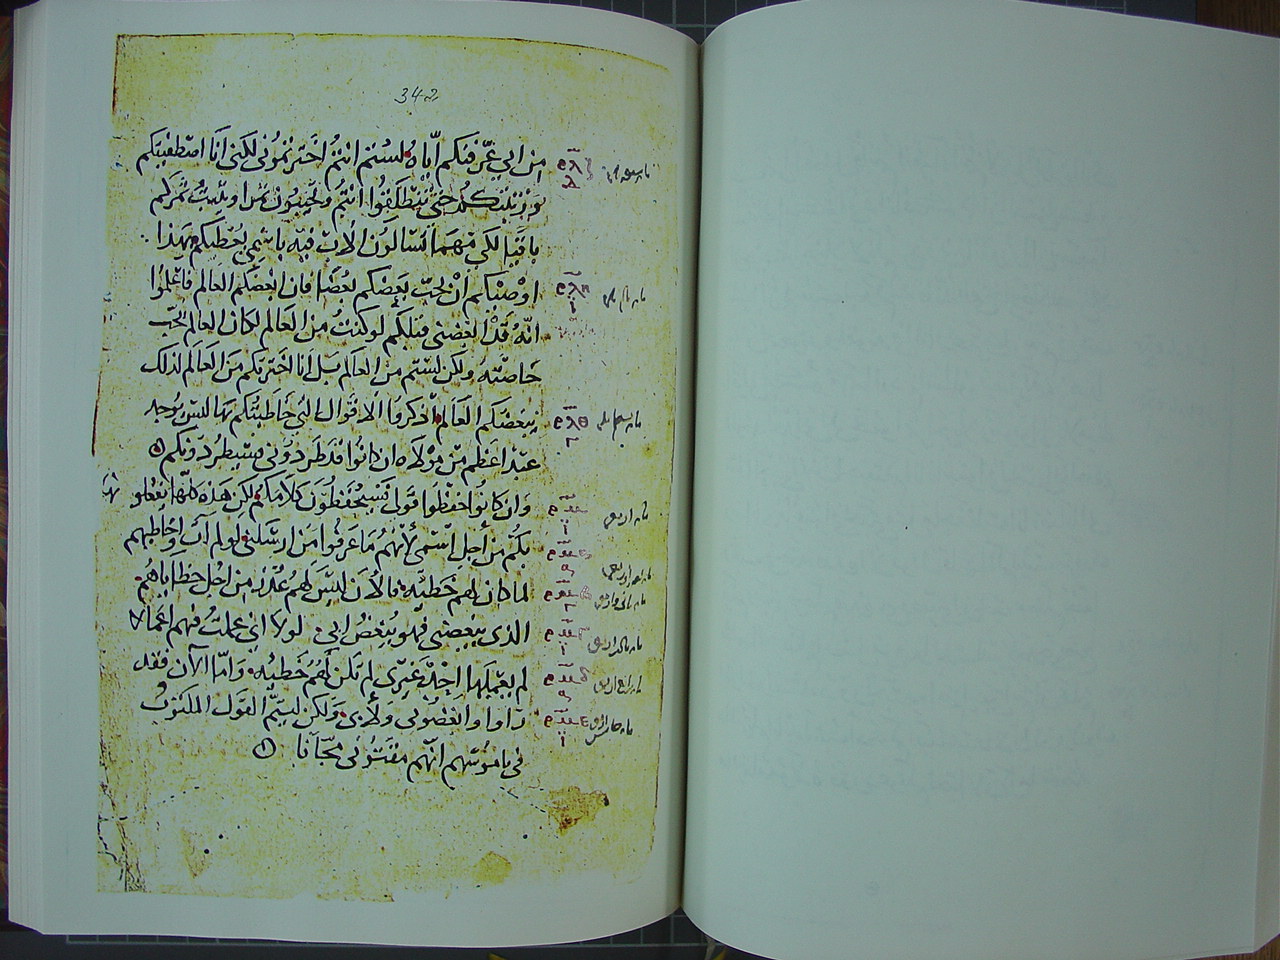 342
من ابي عرفتكم اياه لستم انتم اخترتموني لكني انا اصطفيتكم
حتى تنطلقوا انتم وتجيبون ثمرا ويثبت ثمركم
باقيا لكي مهما تسالون الاب فيه باسمي يعطيكم بهذا
اوصيكم ان يحب بعضكم بعضا فان ابغضكم العالم فاعلموا
انه قد ابغضني قبلكم لو كنتم من العالم لكان العالم يحب
خاصته ولكن لستم من العالم بل انا اخترتكم من العالم لذلك
يبغضكم العالم اذكروا الاقوال التي خاطبتكم بها ليس يوجد
عبد اعظم من مولاه ان كانوا قد طردوني فسيطردونكم
وان كانوا حفظوا قولي فسيحفظون كلامكم لكن هذه كلها يفعلو نها
بكم من أجل اسمي لأنهم ما عرفوا من ارسلني لو لم آت واخاطبهم
لما كان لهم خطيه فالأن ليس لهم عذر من اجل خطاياهم
الذي يبغضني فهو يبغض ابي لولا اني عملت فيهم اعمالا
لم يعملها احد غيري لم تكن لهم خطيه واما الآن فقد
راوا وابغضوني ولأبي ولكن ليتم القول المكتوب
في ناموسهم انهم مقتوني مجآنا